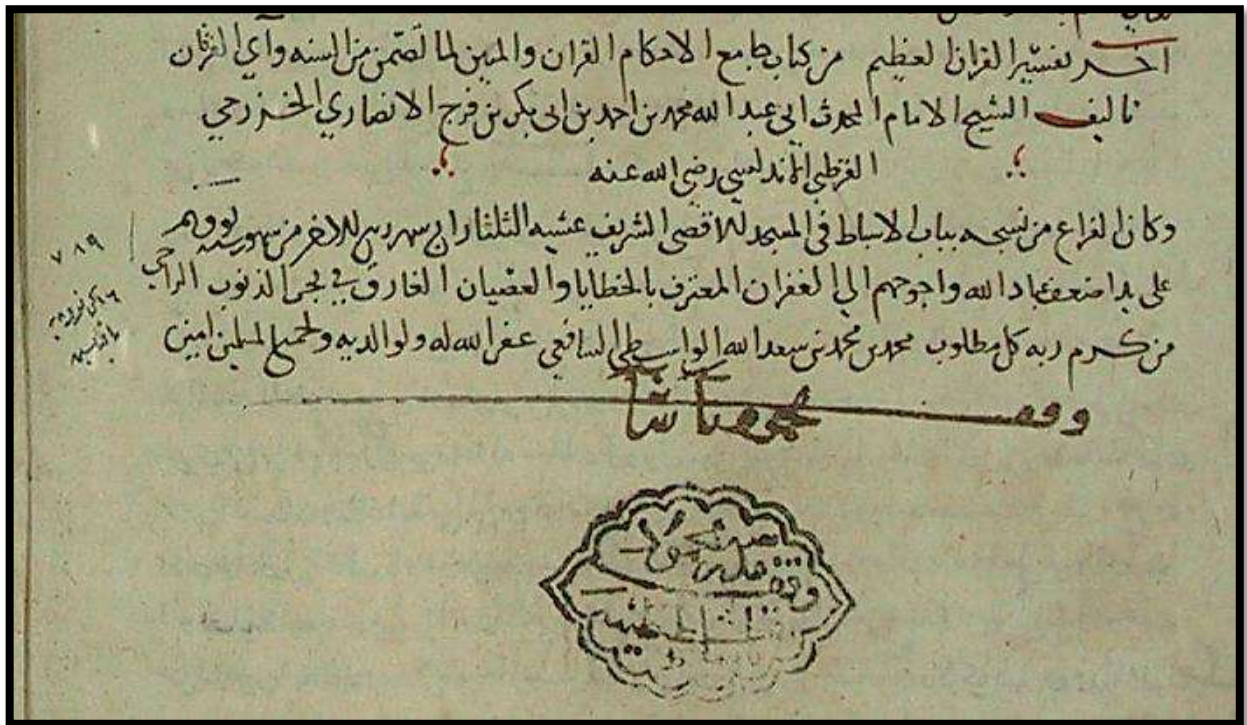 اخر تفسير القران العظيم من كتاب جامع الاحكام القران والمبين لما تضمن من السنه وآي الفرقان
تاليف الشيخ الامام المحدث ابي عبد الله محمد بن احمد بن ابي بكر بن فرج الانصاري الخزرجي
القرطبي الاندلسي رضي الله عنه
وكان الفراغ من نسخه بباب الاسباط في المسجد الاقصى الشريف عشيه الثلثا رابع شهر ربيع الاخر من شهور سنه
على يد اضعف عباد الله واحوجهم الى الغفران المعترف بالخطايا والعصيان الغارق في لجج الذنوب الراجي
من كرم ربه كل مطلوب محمد بن محمد بن سعد الله الواسطي الشافعي غفر الله له ولوالديه ولجميع المسلمين امين
٧٨٩
وقف